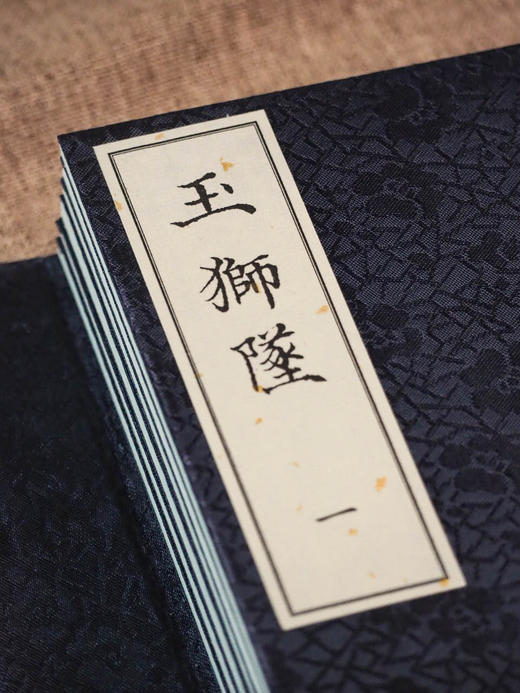 玉獅墜
一